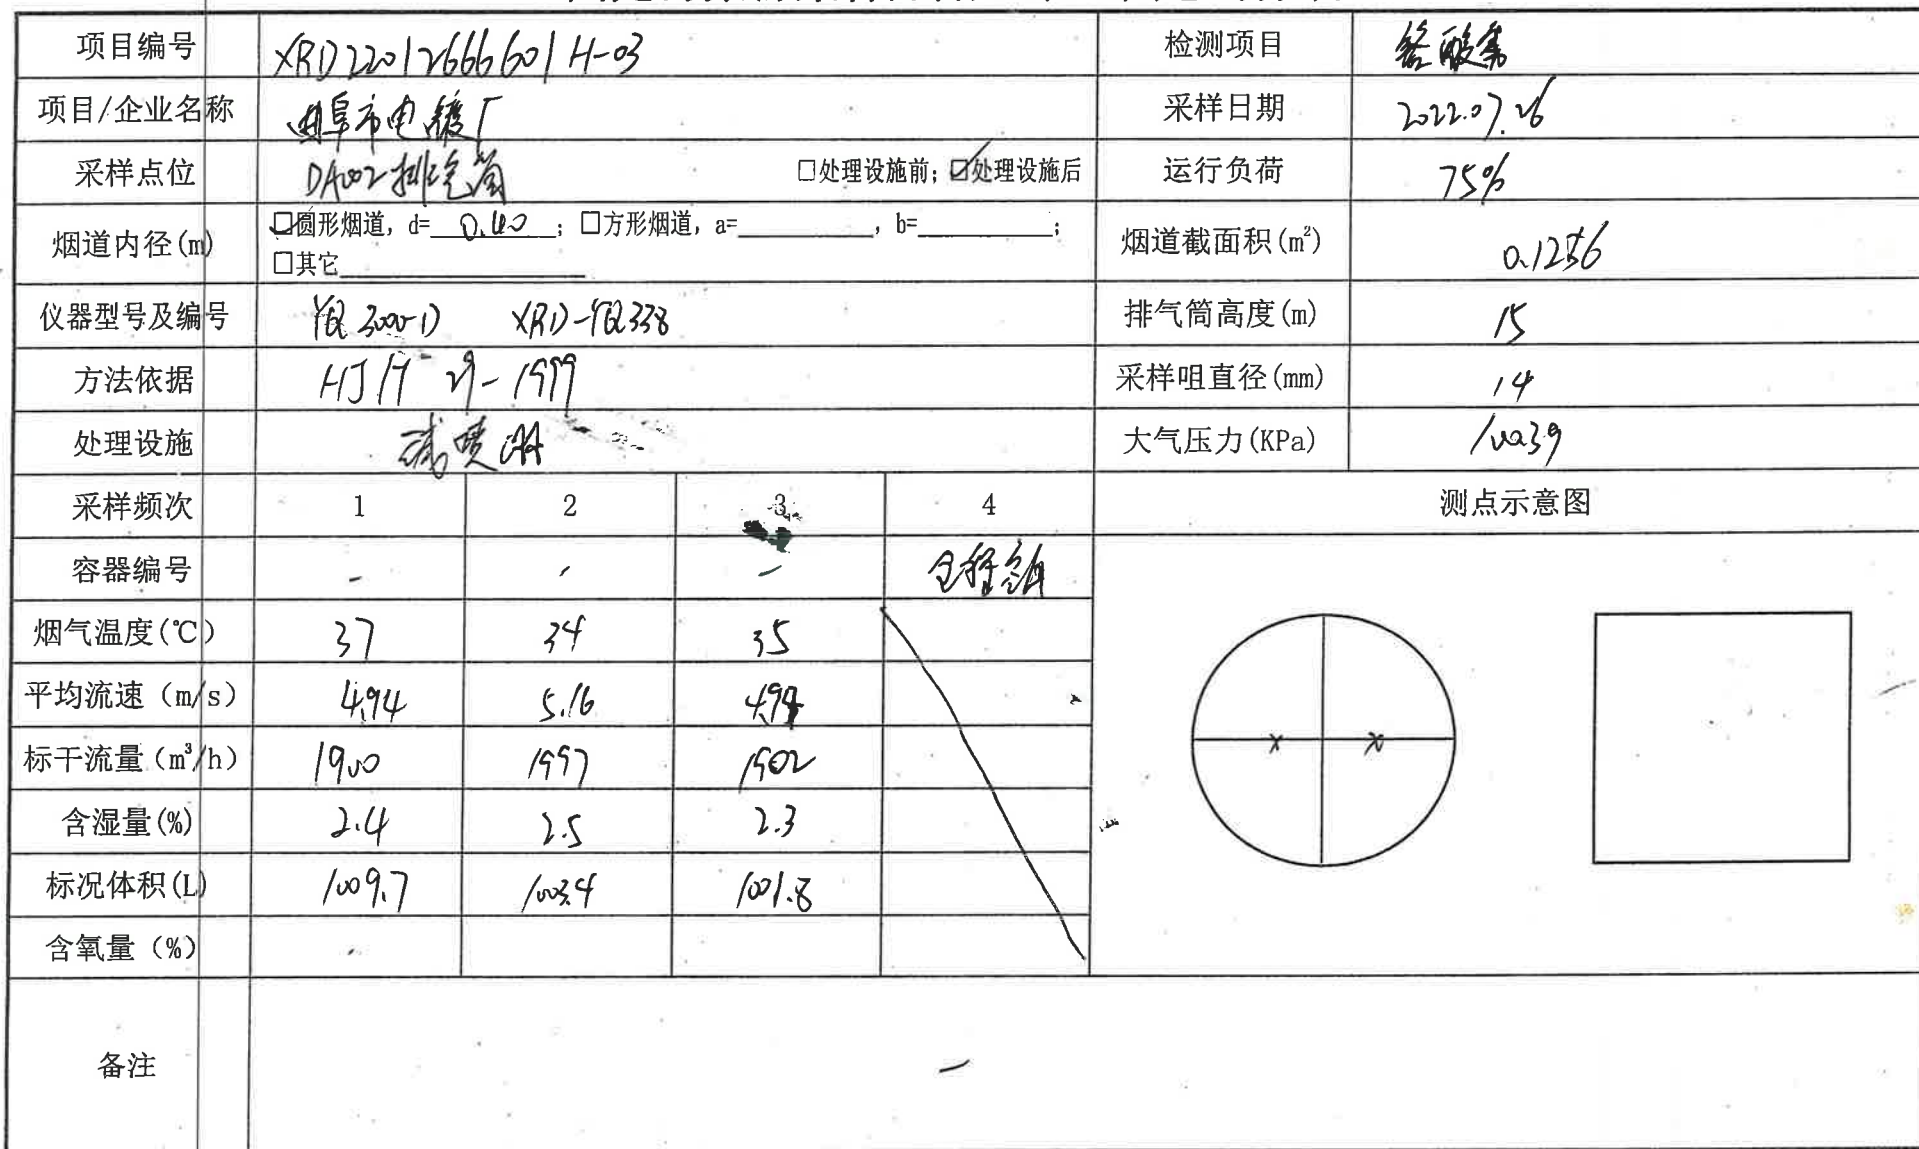 项目编号 XRD22012666601H-03 检测项目 铬酸雾
项目/企业名称 曲阜市电镀厂 采样日期 2022.07.26
采样点位 DA002排气筒 □处理设施前; ☑处理设施后 运行负荷 75%
烟道内径(m) ☑圆形烟道, d=0.40; □方形烟道, a=____, b=____; 烟道截面积(m²) 0.1256
□其它____
仪器型号及编号 YQ3000-D XRD-YQ338 排气筒高度(m) 15
方法依据 HJ/T 29-1999 采样咀直径(mm) 14
处理设施 碱喷淋 大气压力(KPa) 100.39
采样频次 1 2 3 4 测点示意图
容器编号 - - - 全程空白
烟气温度(℃) 37 34 35
平均流速 (m/s) 4.94 5.16 4.94
标干流量 (m³/h) 1900 1997 1902
含湿量(%) 2.4 2.5 2.3
标况体积(L) 1009.7 1003.4 1001.8
含氧量 (%) -
备注 -